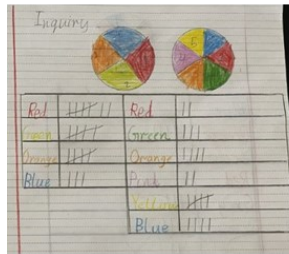 Inquiry
Red Red
Green Green
Orange Orange
Blue Pink
Yellow
Blue